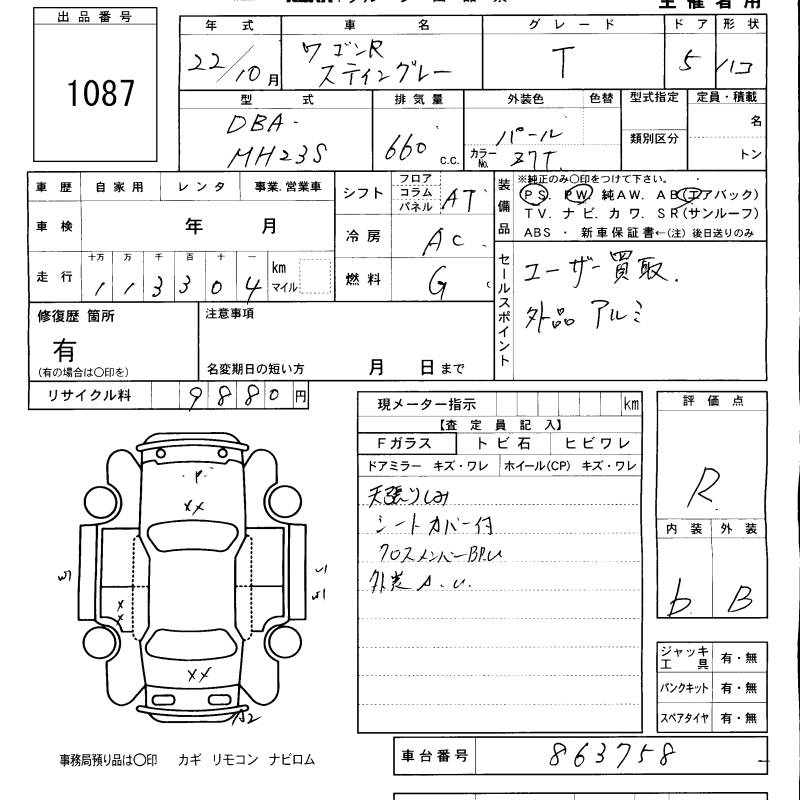 主催者用
出品番号
1087
年式 車名 グレード ドア 形状
22/10月 ワゴンR スティングレー T 5 ハコ
型式 排気量 外装色 色替 型式指定 定員・積載
DBA- MH23S 660 c.c. パール カラーNo. Z7T 類別区分 名 トン
車歴 自家用 レンタ 事業.営業車
車検 年 月
走行 十万 万 千 百 十 一
1 1 3 3 0 4 km マイル
シフト フロア コラム パネル AT
冷房 AC
燃料 G
装備品
※純正のみ〇印をつけて下さい。
PS. PW. 純AW. AB(エアバック)
TV. ナビ. カワ. SR(サンルーフ)
ABS ・ 新車保証書←(注) 後日送りのみ
セールスポイント
ユーザー買取.
外品 アルミ
修復歴 箇所
有
(有の場合は〇印を)
注意事項
名変期日の短い方 月 日まで
リサイクル料 9880円
現メーター指示 km
【査定員記入】
Fガラス トビ石 ヒビワレ
ドアミラー キズ・ワレ ホイール(CP) キズ・ワレ
天張りしみ
シートカバー付
クロスメンバーBP.U
外装 A.U.
評価点
R
内装 外装
b B
P
XX
XX
A2
ジャッキ工具 有・無
パンクキット 有・無
スペアタイヤ 有・無
車台番号 863758
事務局預り品は〇印 カギ リモコン ナビロム